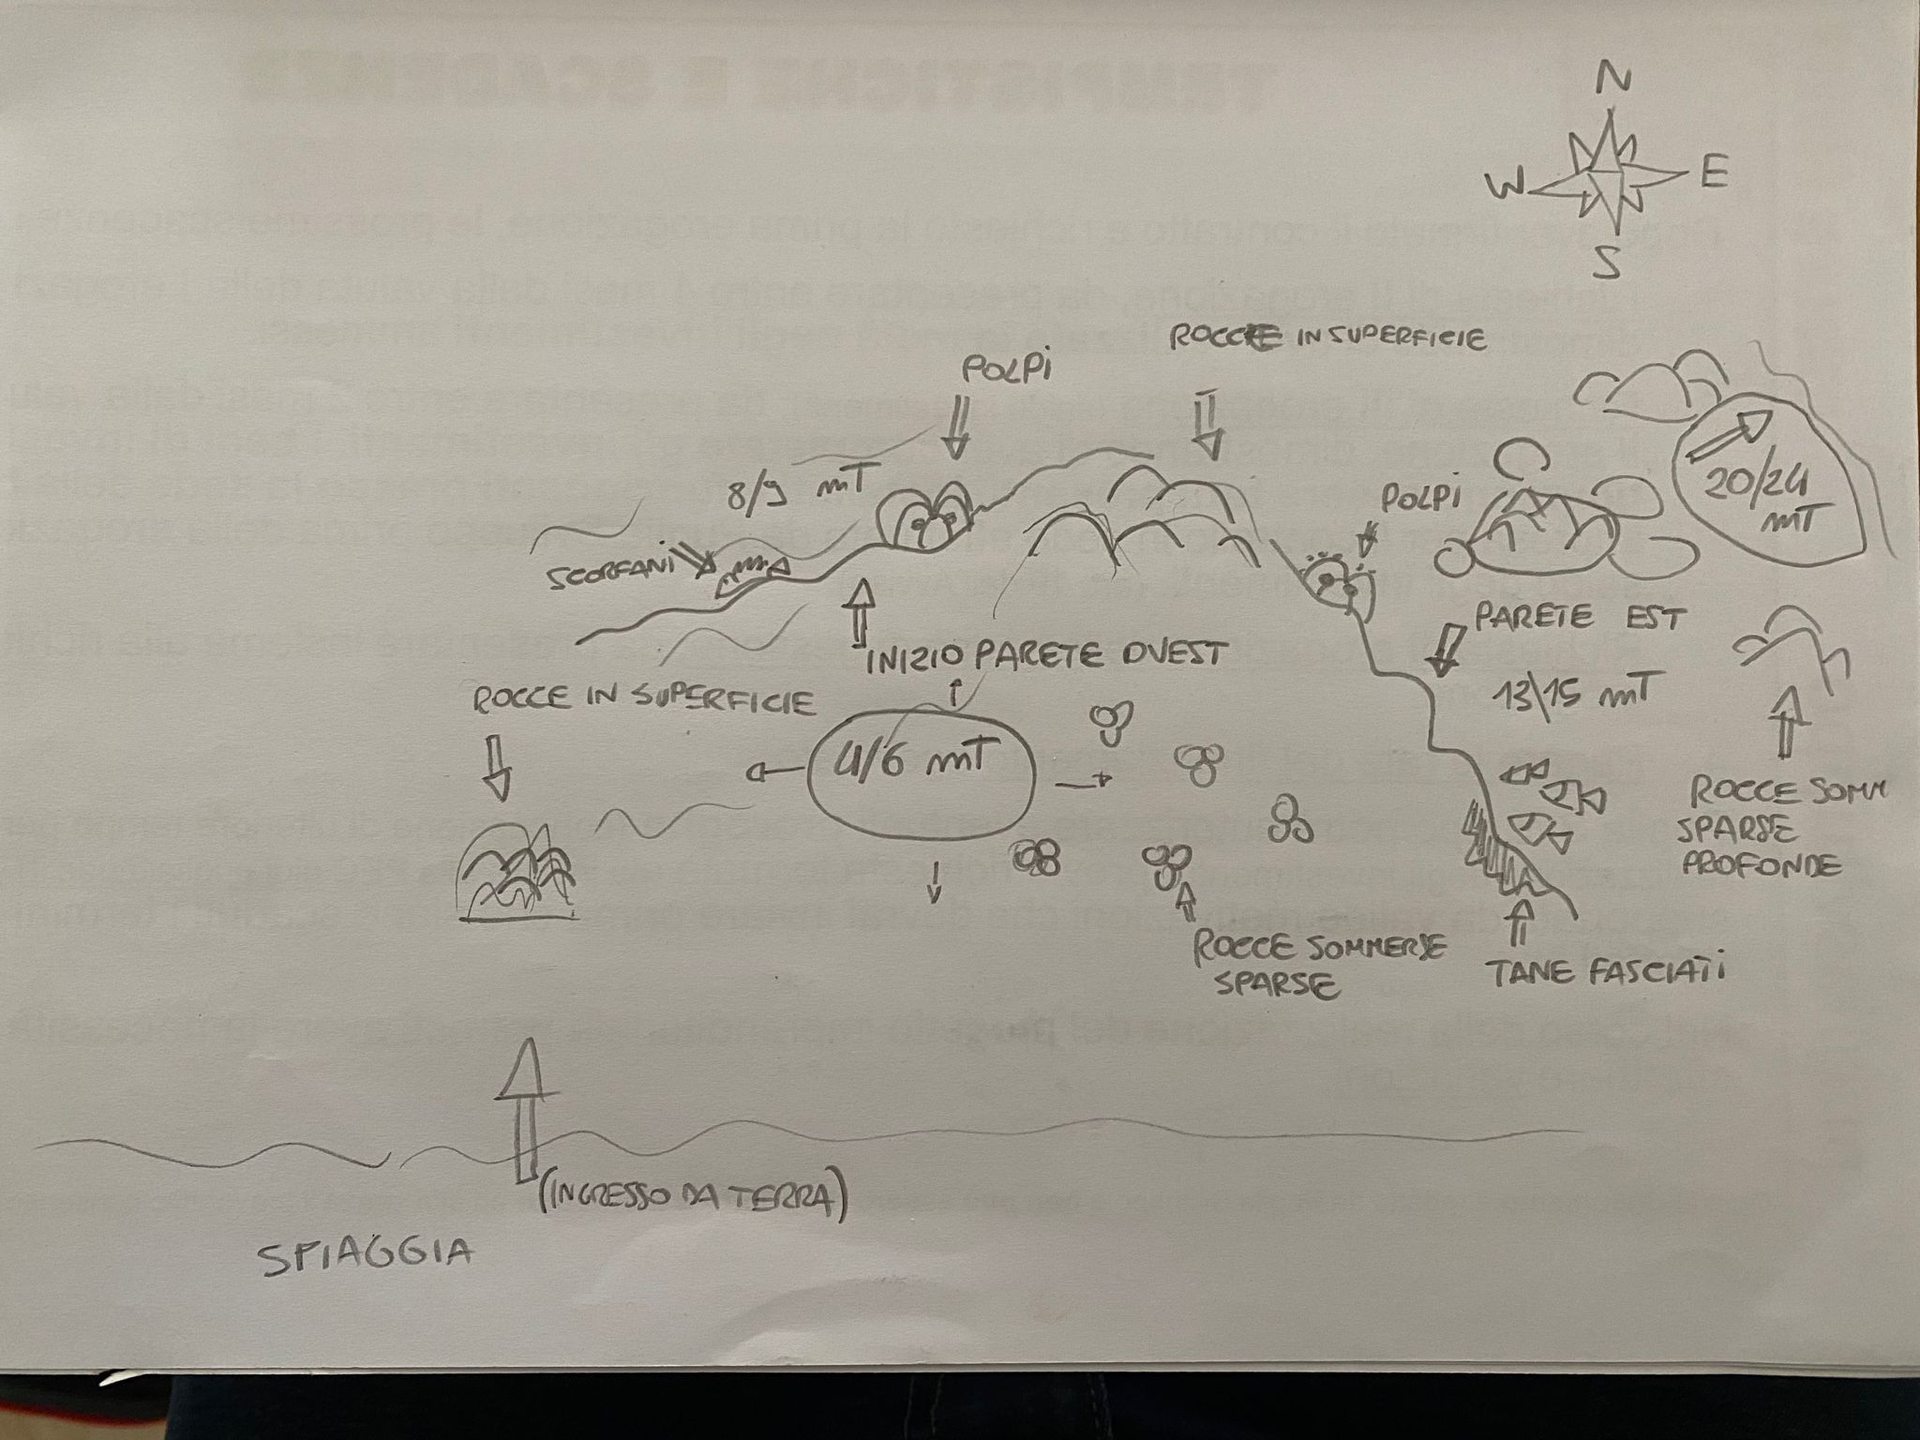 N
W E
S
ROCCE IN SUPERFICIE
POLPI
8/9 mT
POLPI
20/24
mT
SCORFANI
PARETE EST
INIZIO PARETE OVEST
13\15 mT
ROCCE IN SUPERFICIE
4/6 mT
ROCCE SOMM
SPARSE
PROFONDE
ROCCE SOMMERSE
SPARSE
TANE FASCIATI
(INGRESSO DA TERRA)
SPIAGGIA